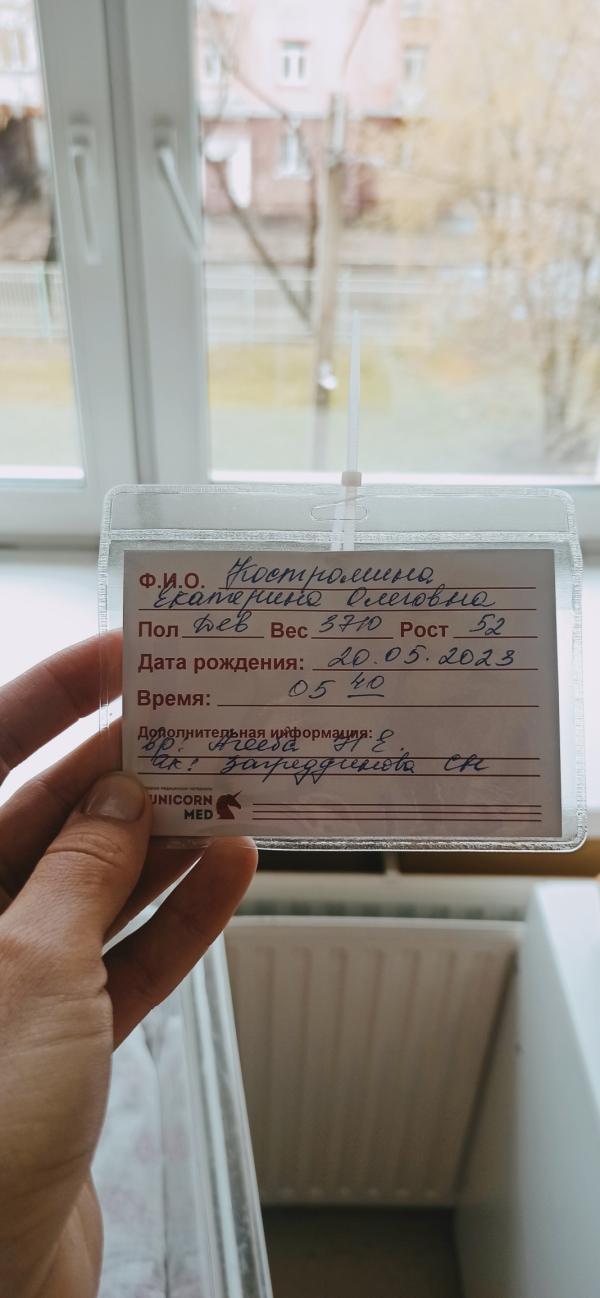 Ф.И.О. Костромина
Екатерина Олеговна
Пол Дев Вес 3710 Рост 52
Дата рождения: 20.05.2023
Время: 05 40
Дополнительная информация:
вр: Агеева Н Е.
ак: Загреддинова СН
UNICORN
MED